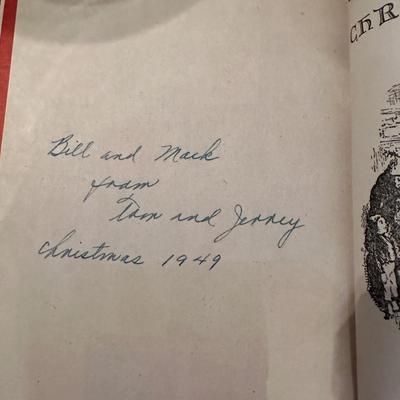 Bill and Mack
from
Tom and Jerrey
Christmas 1949
CHR